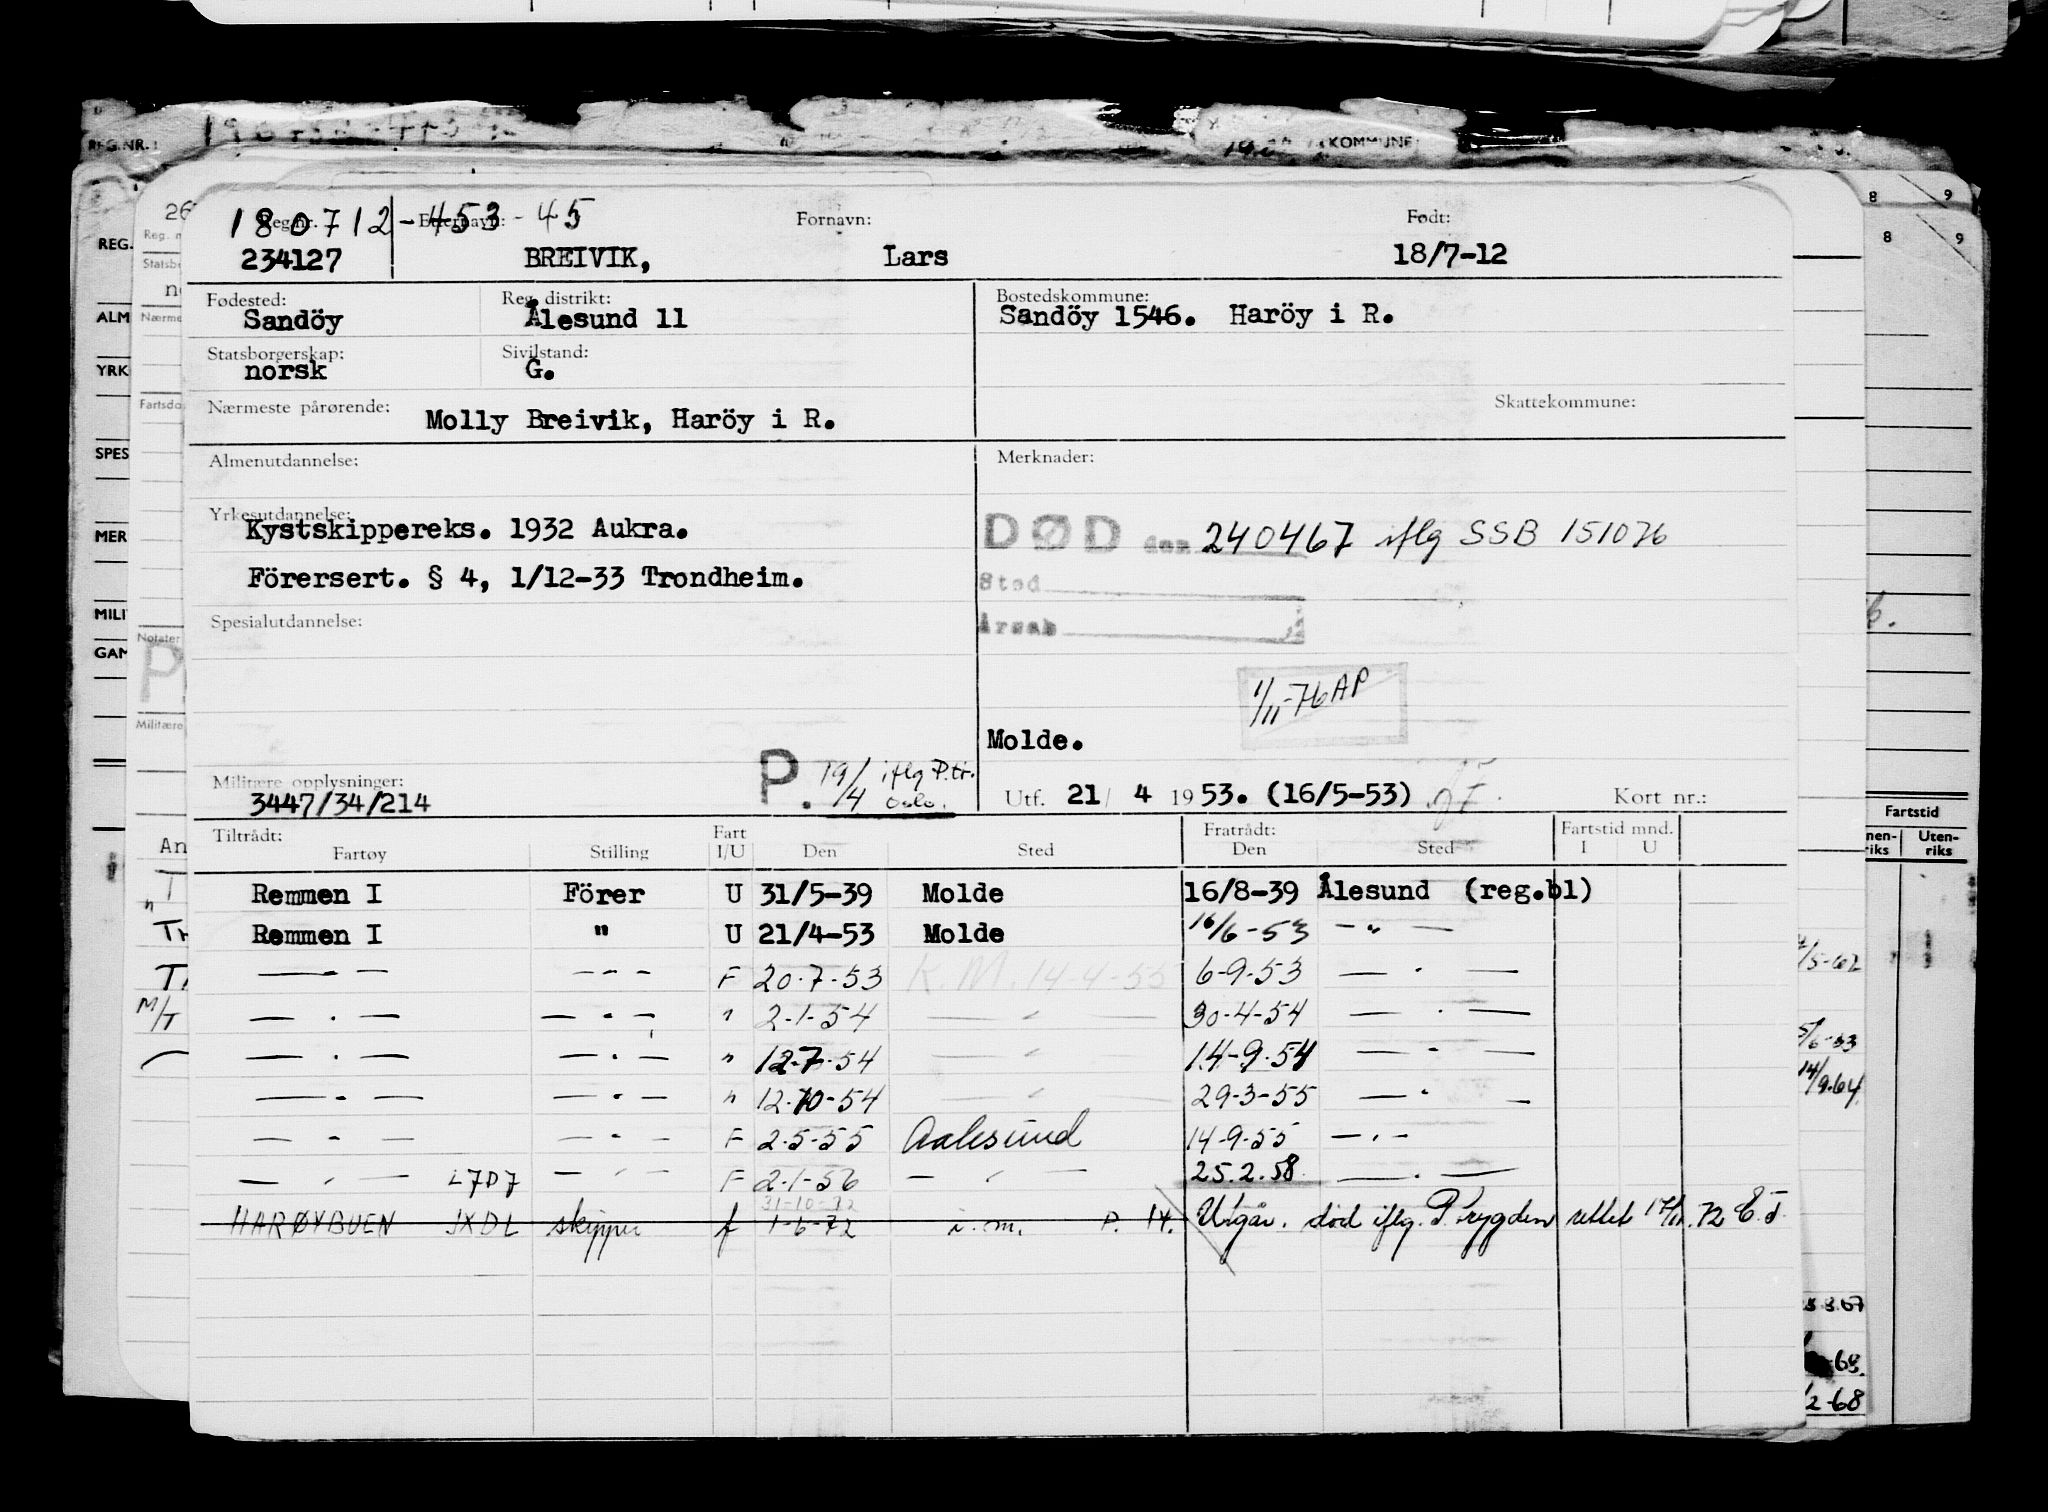 REG.NR. KOMMUNE
180712-453-45
Reg.nr. Etternavn: Fornavn: Født:
234127 BREIVIK, Lars 18/7-12
Fødested: Reg. distrikt: Bostedskommune:
Sandöy Ålesund 11 Sandöy 1546. Haröy i R.
Statsborgerskap: Sivilstand:
norsk G.
Nærmeste pårørende: Skattekommune:
Molly Breivik, Haröy i R.
Almenutdannelse: Merknader:
Yrkesutdannelse:
Kystskippereks. 1932 Aukra.
DØD den 240467 iflg SSB 151076
Förersert. § 4, 1/12-33 Trondheim.
Sted
Spesialutdannelse:
Årsak
1/11-76 AP
Molde.
Militære opplysninger: P. 19/4 iflg P.tr. Oslo.
3447/34/214
Utf. 21/ 4 1953. (16/5-53) Kort nr.:
Tiltrådt: Fart Fratrådt: Fartstid mnd.
Fartøy Stilling I/U Den Sted Den Sted I U
Remmen I Förer U 31/5-39 Molde 16/8-39 Ålesund (reg.bl)
Remmen I " U 21/4-53 Molde 16/6-53 — " —
— " — — " — F 20.7.53 K.M. 14-4-55 6-9.53 — " —
— " — — " — " 2.1.54 — " — 30-4-54 — " —
— " — — " — " 12.7.54 — " — 14-9.54 — " —
— " — — " — " 12.10-54 — " — 29-3-55 — " —
— " — — " — F 2.5-55 Aalesund 14-9.55 — " —
— " — L7D7 — " — F 2.1-56 — " — 25.2.58 — " —
31-10-72
HARØYBUEN JXDL skipper f 1-6-72 i.m. P. 14. Utgår. død iflg. P.trygden rettet 17/11.72 E.J.
8 9
8 9
Fartstid
Uten-
riks